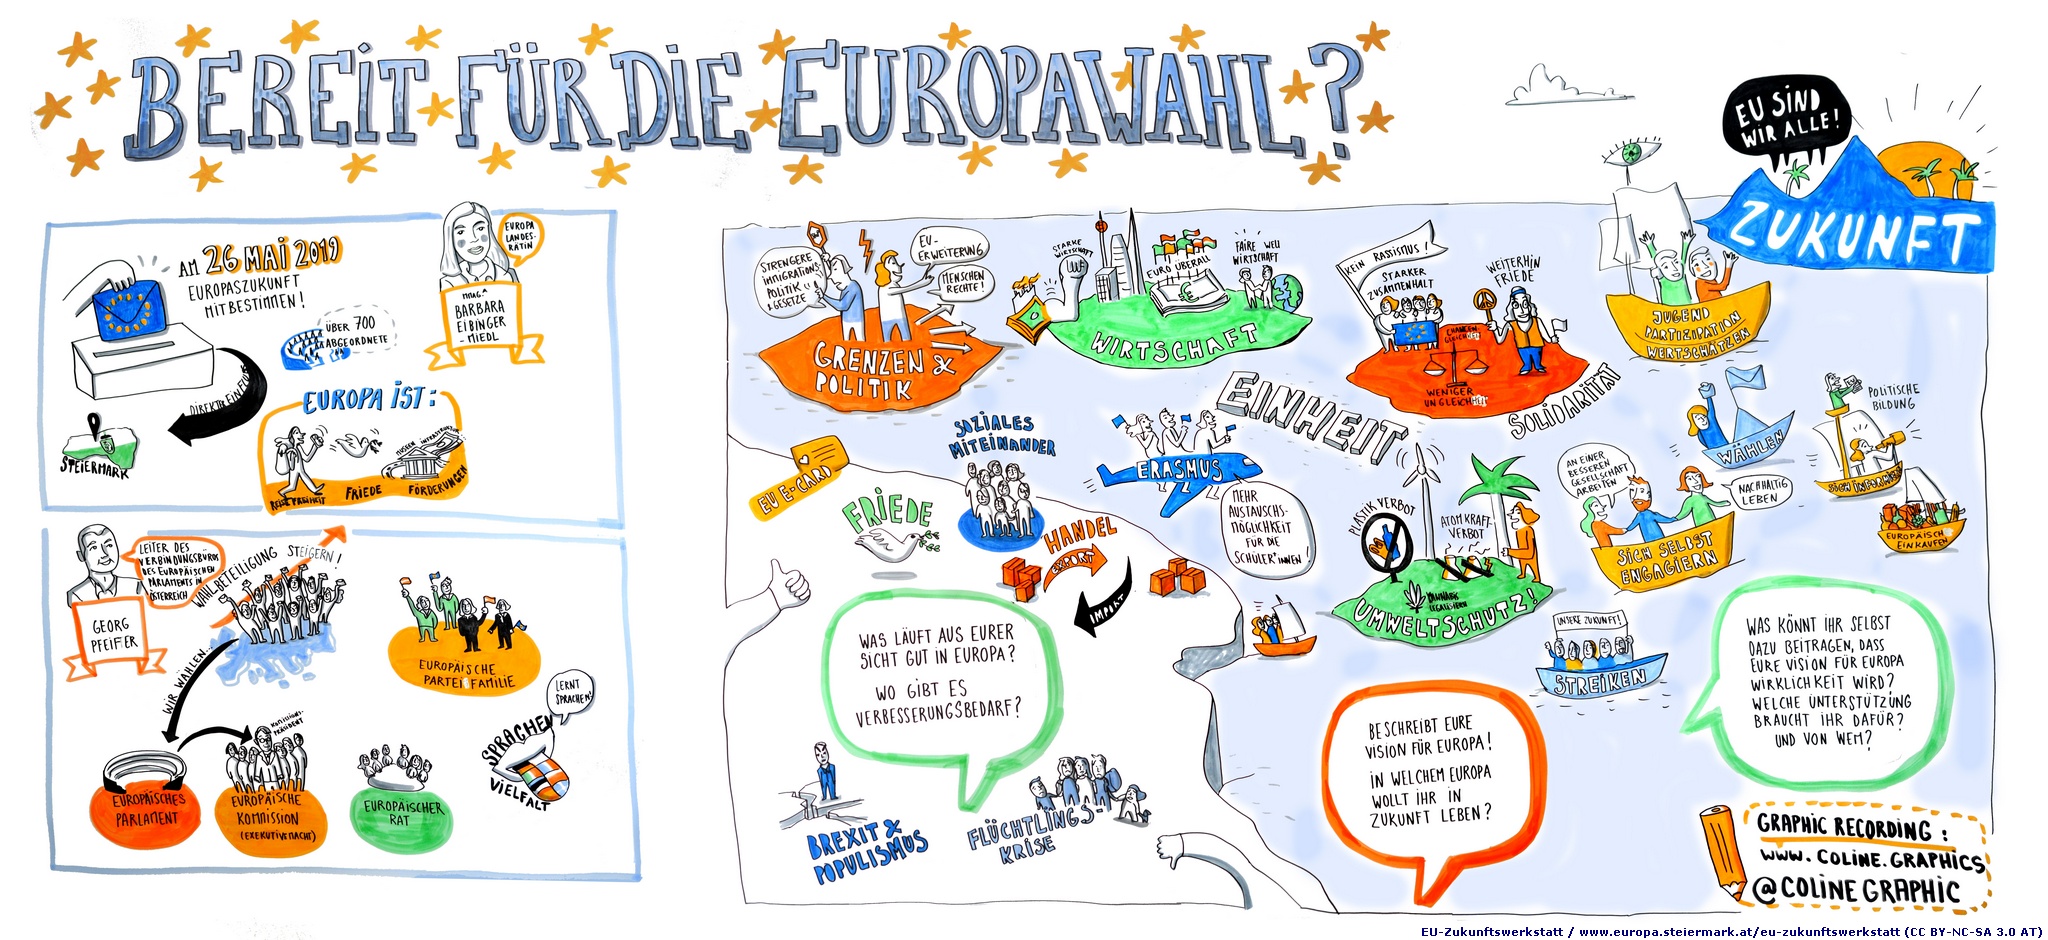 BEREIT FÜR DIE EUROPAWAHL?
AM 26 MAI 2019
EUROPASZUKUNFT
MITBESTIMMEN!
ÜBER 700
ABGEORDNETE
DIREKTER EINFLUSS
STEIERMARK
EUROPA
LANDES-
RÄTIN
MMAG.ᴬ
BARBARA
EIBINGER
-MIEDL
EUROPA IST:
REISEFREIHEIT
FRIEDE
MUSEEN
INFRASTRUKTUR
FÖRDERUNGEN
LEITER DES
VERBINDUNGSBÜROS
DES EUROPÄISCHEN
PARLAMENTS IN
ÖSTERREICH
GEORG
PFEIFER
WAHLBETEILIGUNG STEIGERN!
WIR WÄHLEN...
EUROPÄISCHE
PARTEIFAMILIE
KOMISIONS-
PRÄSIDENT
EUROPÄISCHES
PARLAMENT
EUROPÄISCHE
KOMMISSION
(EXEKUTIVMACHT)
EUROPÄISCHER
RAT
LERNT
SPRACHEN!
SPRACHEN
VIELFALT
STRENGERE
IMMIGRATIONS-
POLITIK &
GESETZE
EU-
ERWEITERUNG
MENSCHEN
RECHTE!
GRENZEN &
POLITIK
STARKE
WIRTSCHAFT
EURO ÜBERALL
FAIRE WELT
WIRTSCHAFT
€
WIRTSCHAFT
KEIN RASSISMUS!
STARKER
ZUSAMMENHALT
WEITERHIN
FRIEDE
CHANCEN-
GLEICHHEIT
WENIGER
UNGLEICHHEIT
SOLIDARITÄT
EINHEIT
EU SIND
WIR ALLE!
ZUKUNFT
JUGEND
PARTIZIPATION
WERTSCHÄTZEN
WÄHLEN
POLITISCHE
BILDUNG
SICH INFORMIEREN
EUROPÄISCH
EINKAUFEN
AN EINER
BESSEREN
GESELLSCHAFT
ARBEITEN
NACHHALTIG
LEBEN
SICH SELBST
ENGAGIERN
UNSERE ZUKUNFT!
STREIKEN
EU E-CARD
FRIEDE
SOZIALES
MITEINANDER
ERASMUS
MEHR
AUSTAUSCHS-
MÖGLICHKEIT
FÜR DIE
SCHÜLER*INNEN!
HANDEL
EXPORT
IMPORT
PLASTIK VERBOT
ATOMKRAFT-
VERBOT
CANNABIS
LEGALISIERN
UMWELTSCHUTZ!
WAS LÄUFT AUS EURER
SICHT GUT IN EUROPA?
WO GIBT ES
VERBESSERUNGSBEDARF?
BREXIT &
POPULISMUS
FLÜCHTLINGS-
KRISE
BESCHREIBT EURE
VISION FÜR EUROPA!
IN WELCHEM EUROPA
WOLLT IHR IN
ZUKUNFT LEBEN?
WAS KÖNNT IHR SELBST
DAZU BEITRAGEN, DASS
EURE VISION FÜR EUROPA
WIRKLICHKEIT WIRD?
WELCHE UNTERSTÜTZUNG
BRAUCHT IHR DAFÜR?
UND VON WEM?
GRAPHIC RECORDING:
WWW.COLINE.GRAPHICS
@COLINEGRAPHIC
EU-Zukunftswerkstatt / www.europa.steiermark.at/eu-zukunftswerkstatt (CC BY-NC-SA 3.0 AT)